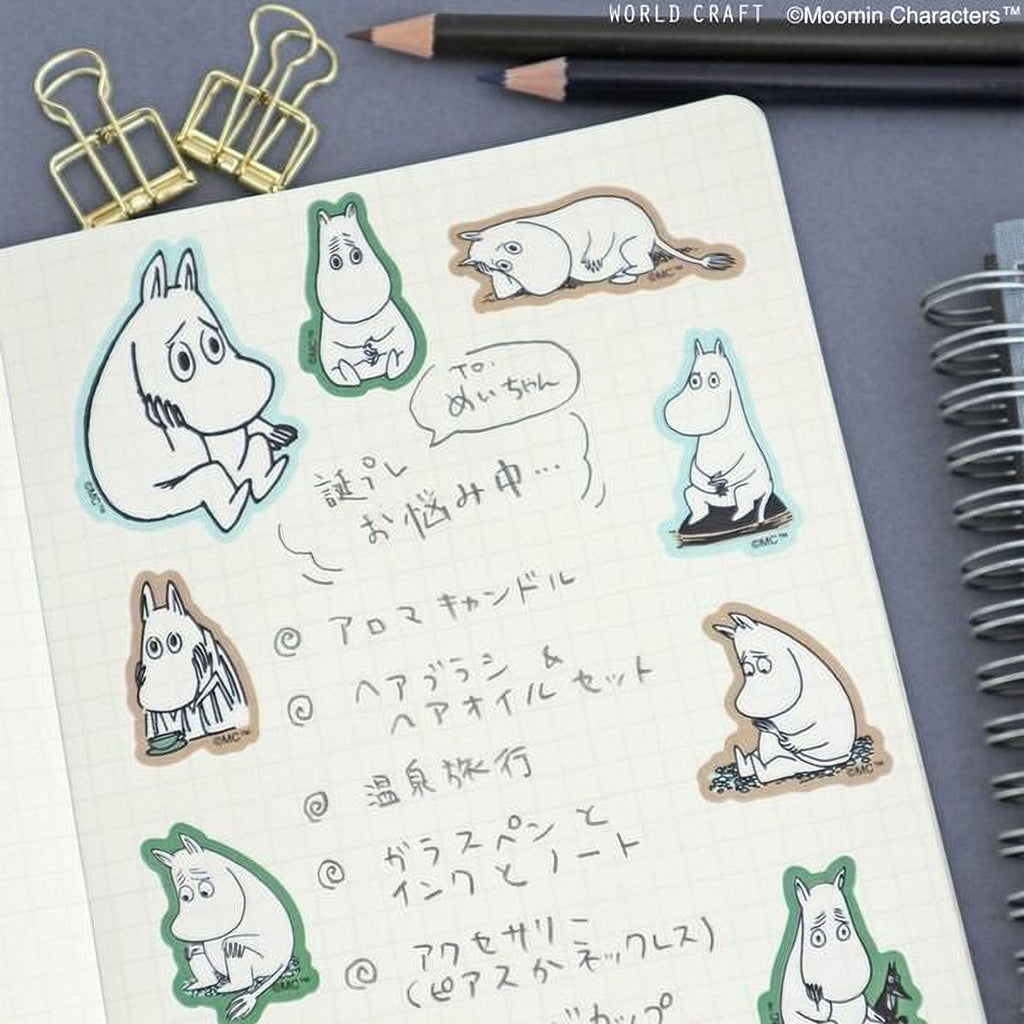 WORLD CRAFT ©Moomin Characters™
めいちゃん
誕プレ
お悩み中…
アロマキャンドル
ヘアブラシ &
ヘアオイルセット
温泉旅行
ガラスペンと
インクとノート
アクセサリー
(ピアスかネックレス)
カップ
©MC™
©MC™
©MC™
©MC™
©MC™
©MC™
©MC™